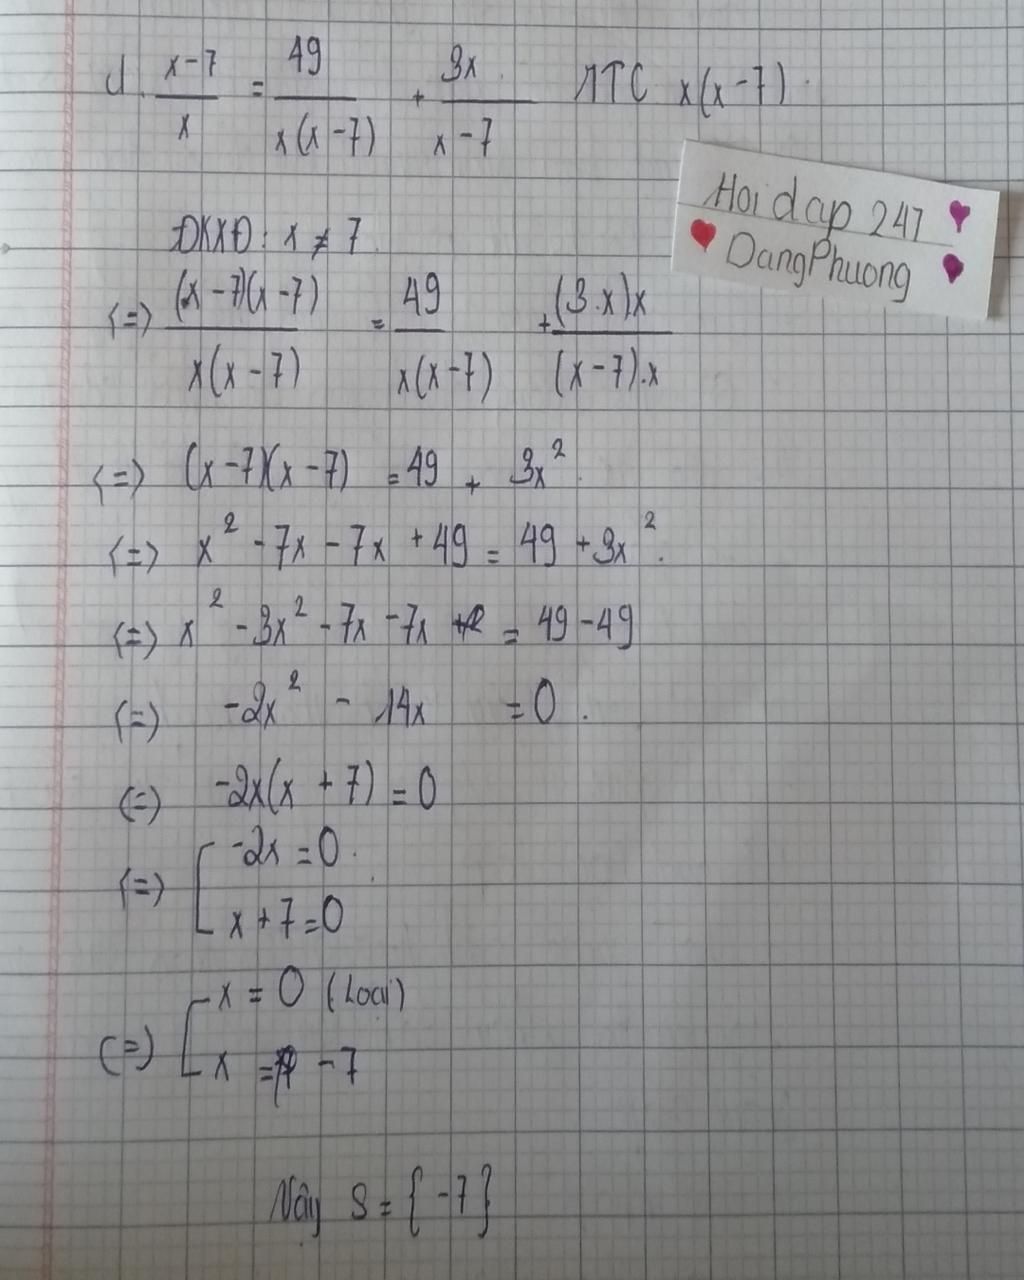 d. x-7/x = 49/x(x-7) + 3x/x-7 MTC x(x-7).
Hoi dap 247
DangPhuong
ĐKXĐ: x ≠ 7
(=) (x-7)(x-7)/x(x-7) = 49/x(x-7) + (3.x)x/(x-7).x
(=) (x-7)(x-7) = 49 + 3x².
(=) x² - 7x - 7x + 49 = 49 + 3x².
(=) x² - 3x² - 7x - 7x = 49 - 49
(=) -2x² - 14x = 0.
(=) -2x(x + 7) = 0
(=) [ -2x = 0.
x + 7 = 0
(=) [ x = 0 (Loại)
x = -7
Vậy S = { -7 }